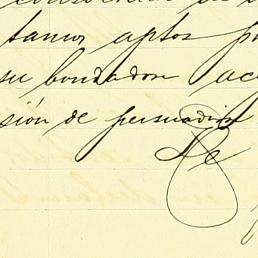 tamos aptos po
su bondadon ac
sión de persuadirn
De